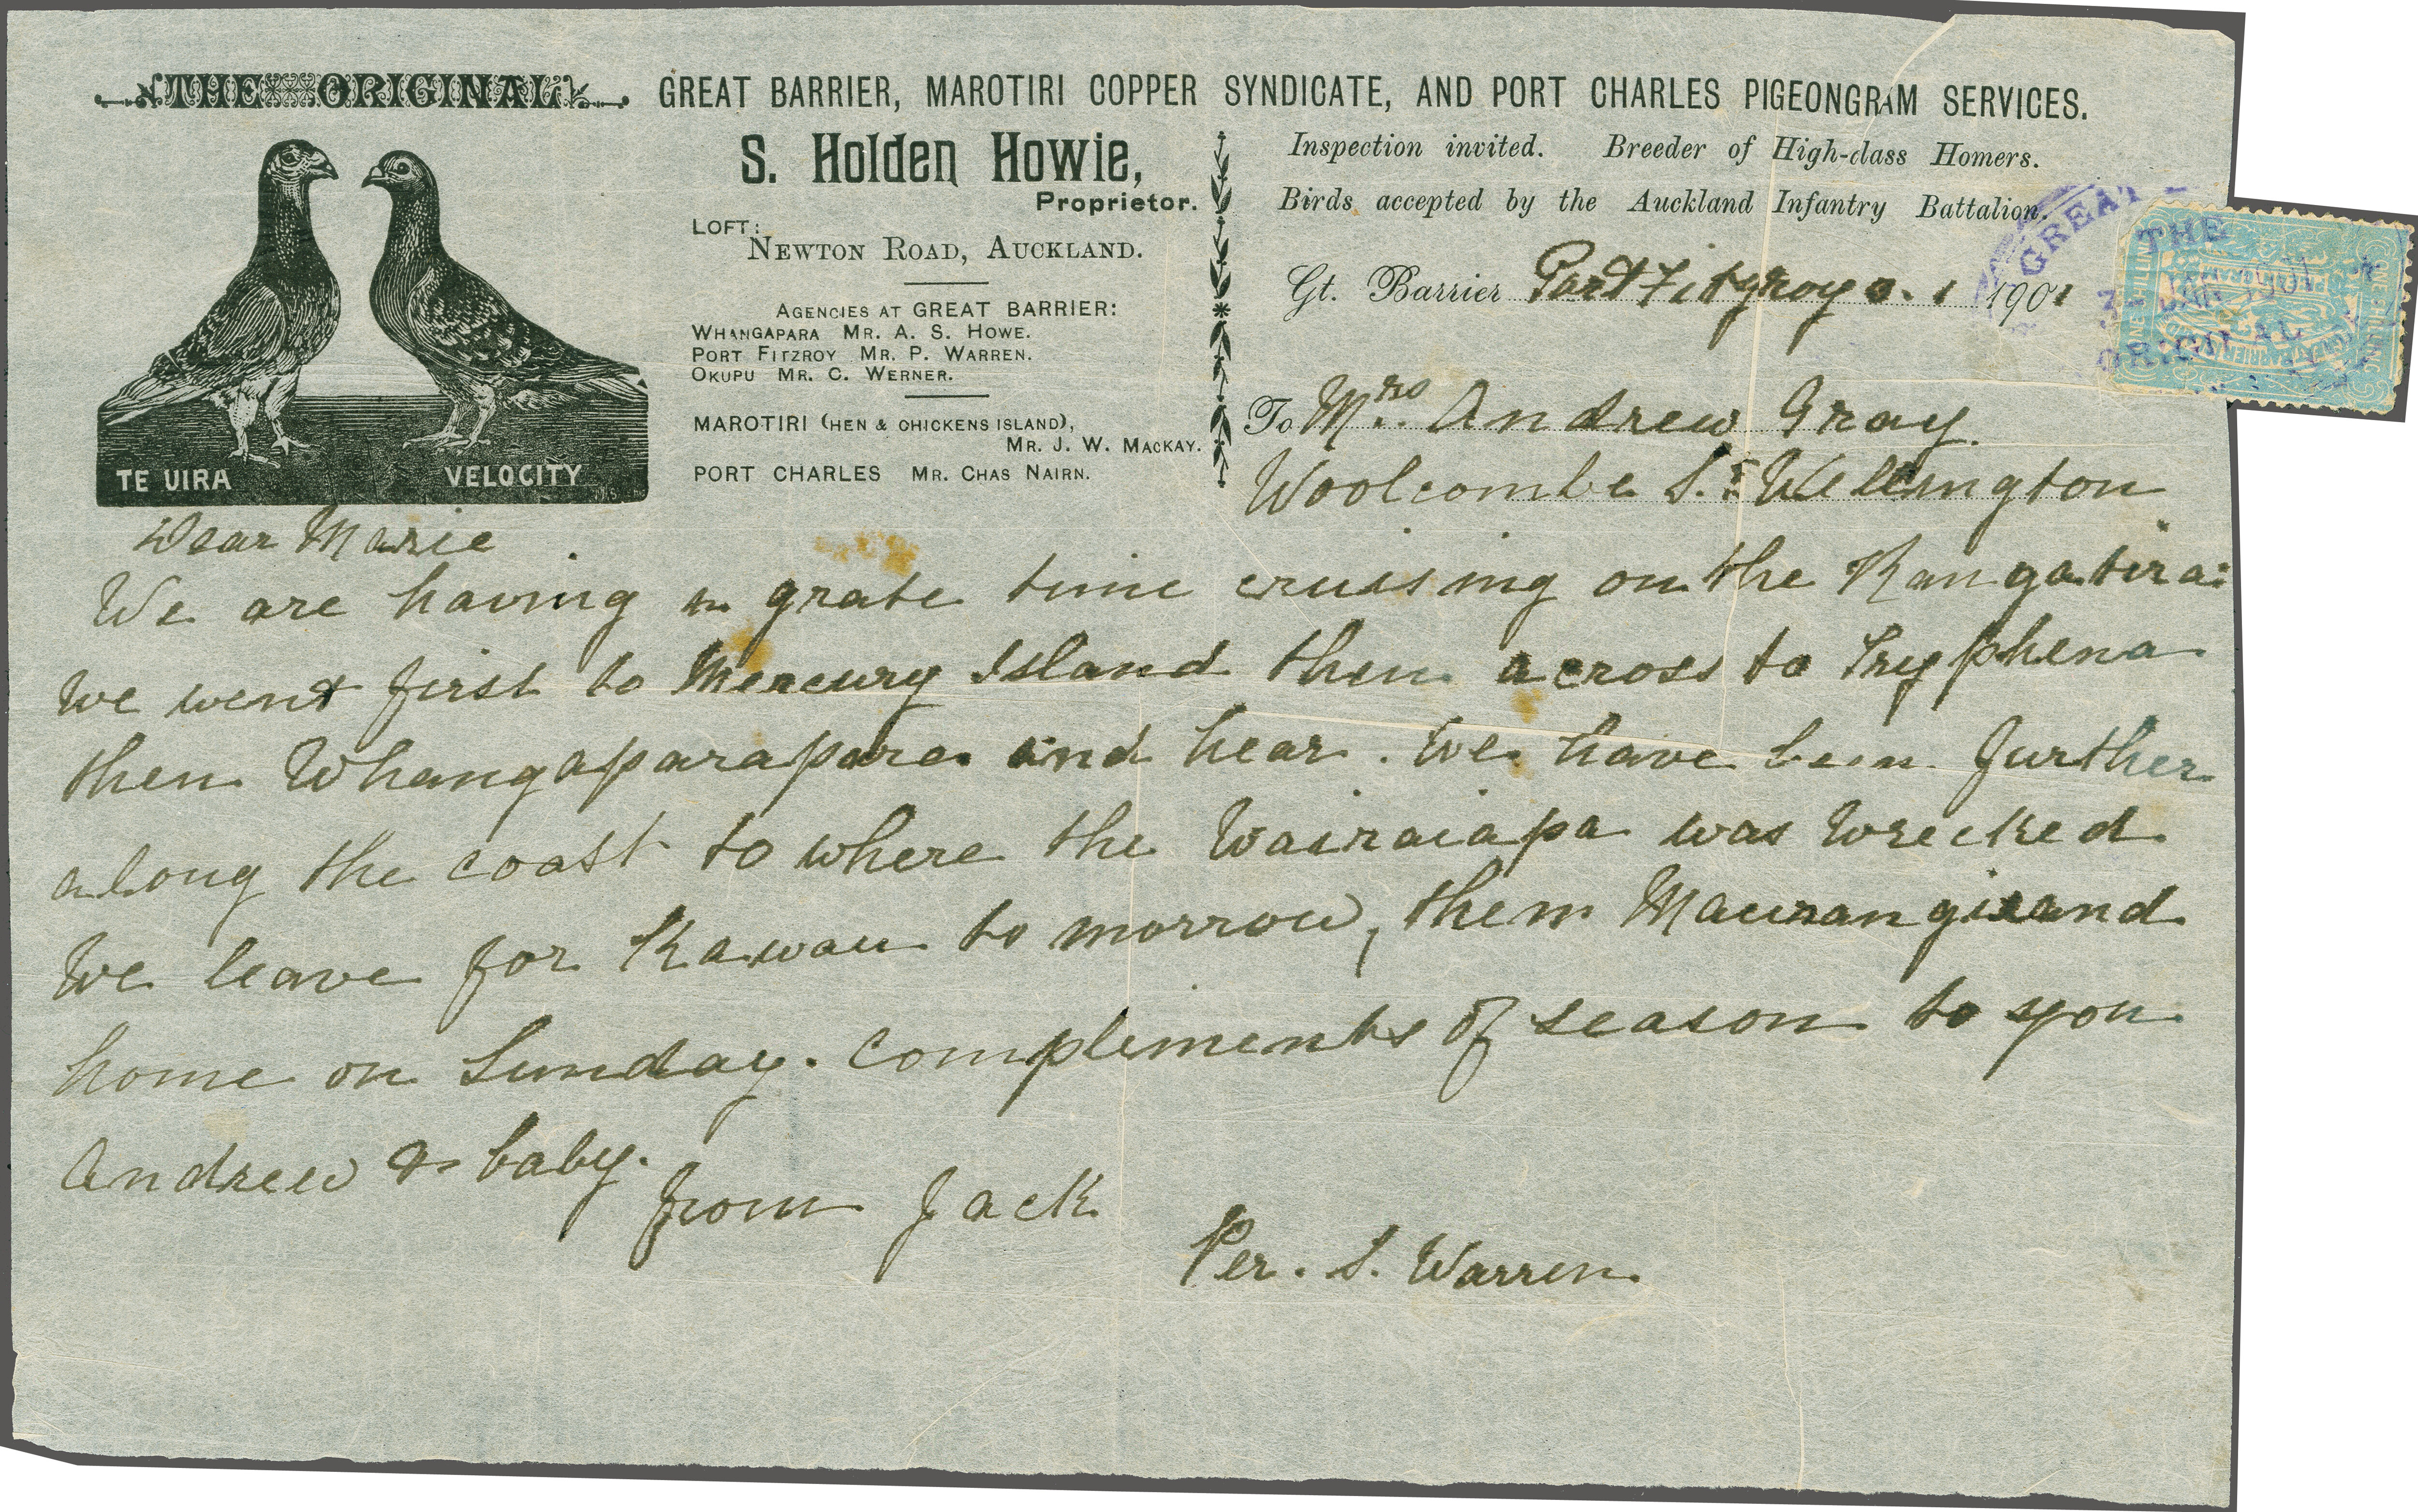 THE ORIGINAL GREAT BARRIER, MAROTIRI COPPER SYNDICATE, AND PORT CHARLES PIGEONGRAM SERVICES.
TE UIRA
VELOCITY
S. Holden Howie,
Proprietor.
LOFT:
NEWTON ROAD, AUCKLAND.
AGENCIES AT GREAT BARRIER:
WHANGAPARA MR. A. S. HOWE.
PORT FITZROY MR. P. WARREN.
OKUPU MR. C. WERNER.
MAROTIRI (HEN & CHICKENS ISLAND),
MR. J. W. MACKAY.
PORT CHARLES MR. CHAS NAIRN.
Inspection invited. Breeder of High-class Homers.
Birds accepted by the Auckland Infantry Battalion.
Gt. Barrier Port Fitzroy 1 1901
GREAT
THE
3 - JAN 1901
ORIGINAL
ONE SHILLING
PIGEONGRAM
GREAT BARRIER
To Mrs. Andrew Gray
Woolcombe St. Wellington
Dear Marie
We are having a grate time cruising on the Rangatira:
we went first to Mercury Island then across to Tryphena
then Whangaparapara and hear. We have been further
along the coast to where the Wairaiapa was wrecked
We leave for Kawau to morrow, them Maurangi and
home on Sunday. compliments of season to you
Andrew & baby.
from Jack
Per. S. Warren